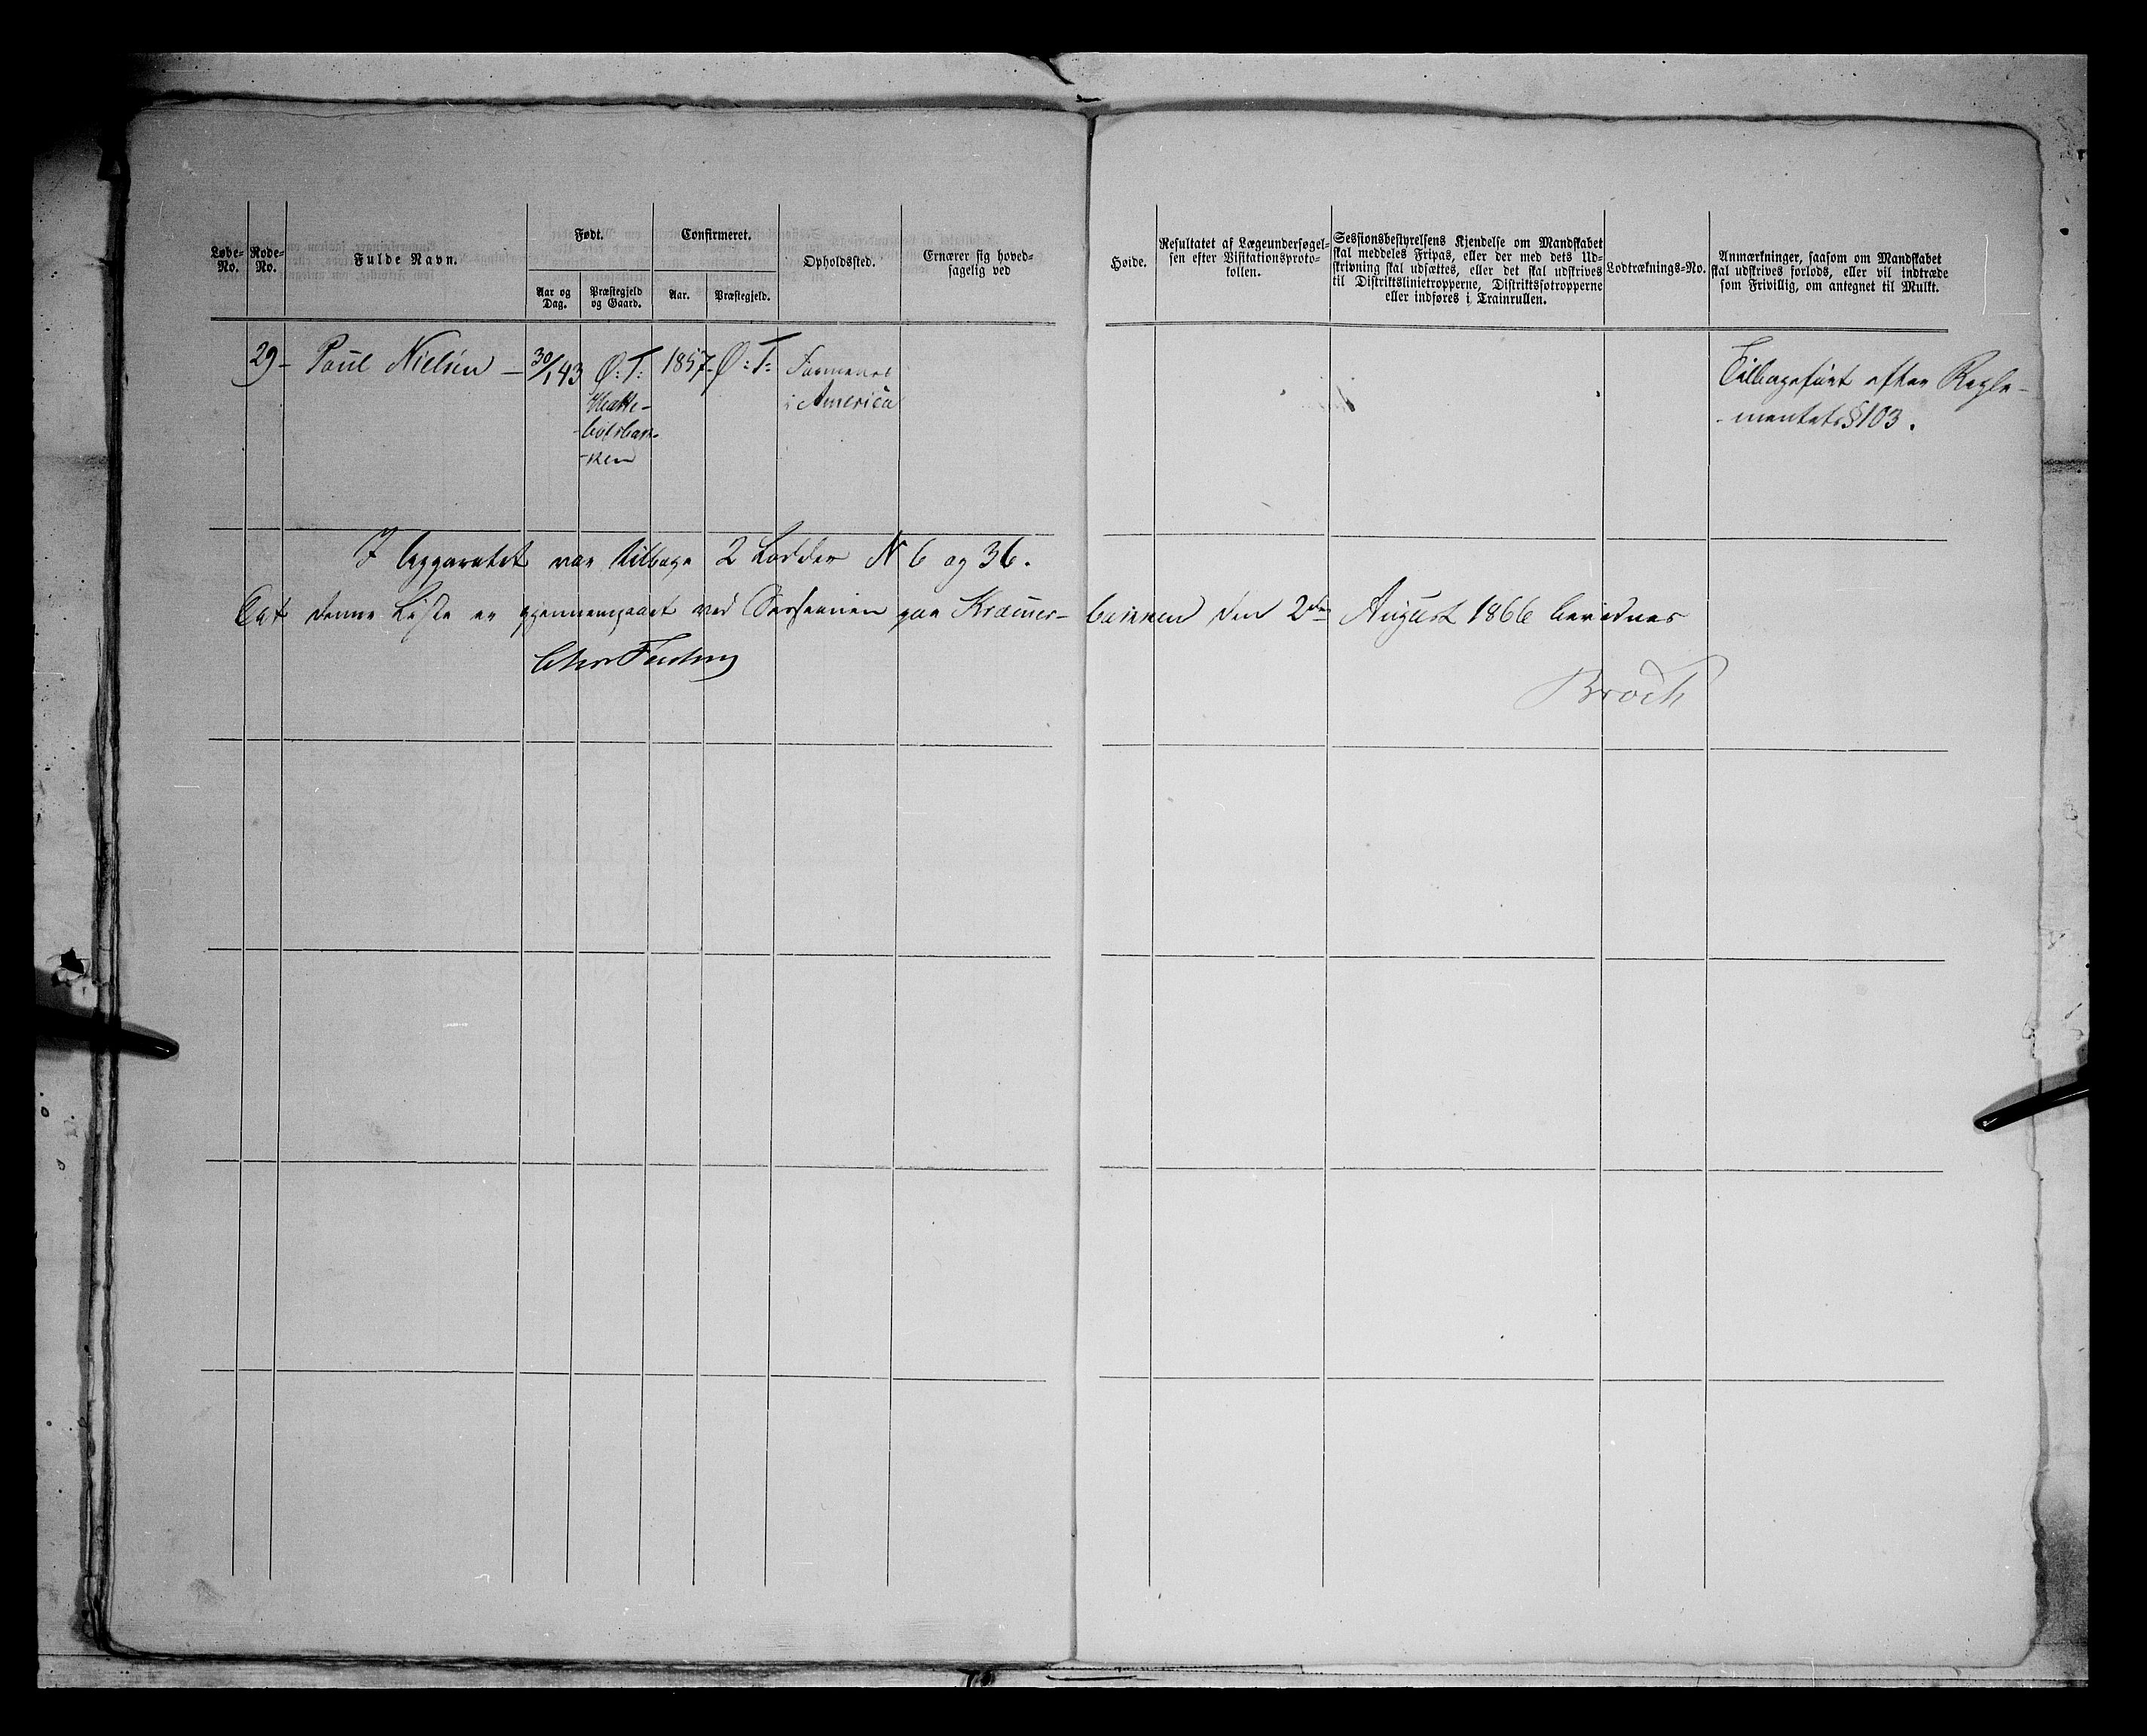 Løbe-No.
Rode-No.
Fulde Navn.
Født.
Aar og Dag.
Præstegjeld og Gaard.
Confirmeret.
Aar.
Præstegjeld.
Opholdssted.
Ernærer sig hoved-
sagelig ved
Høide.
Resultatet af Lægeundersøgel-
sen efter Visitationsproto-
kollen.
Sessionsbestyrelsens Kjendelse om Mandskabet
skal meddeles Fripas, eller der med dets Ud-
skrivning skal udsættes, eller det skal udskrives
til Distriktslinietropperne, Distriktsfotropperne
eller indføres i Trainrullen.
Lodtræknings-No.
Anmærkninger, saasom om Mandskabet
skal udskrives forlods, eller vil indtræde
som Frivillig, om antegnet til Mulkt.
29 - Paul Nielsen - 30/1 43 Ø: T: 1857. Ø: T:
i America
Tilbageført efter Regle-
-mentets § 103.
I Apparatet var tilbage 2 Lodder N 6 og 36.
At denne Liste er gjennemgaaet ved Sessionen paa Kræmer-bakken den 2den August 1866 bevidnes
Broch